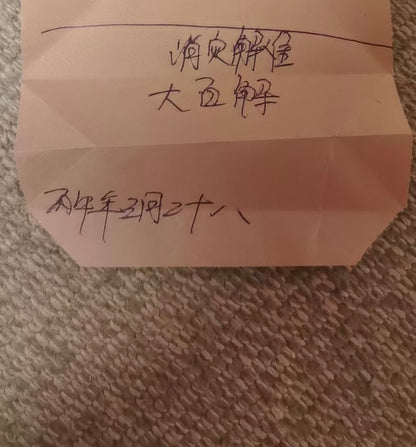 消灾解住
大百解
丙午年五月二十八